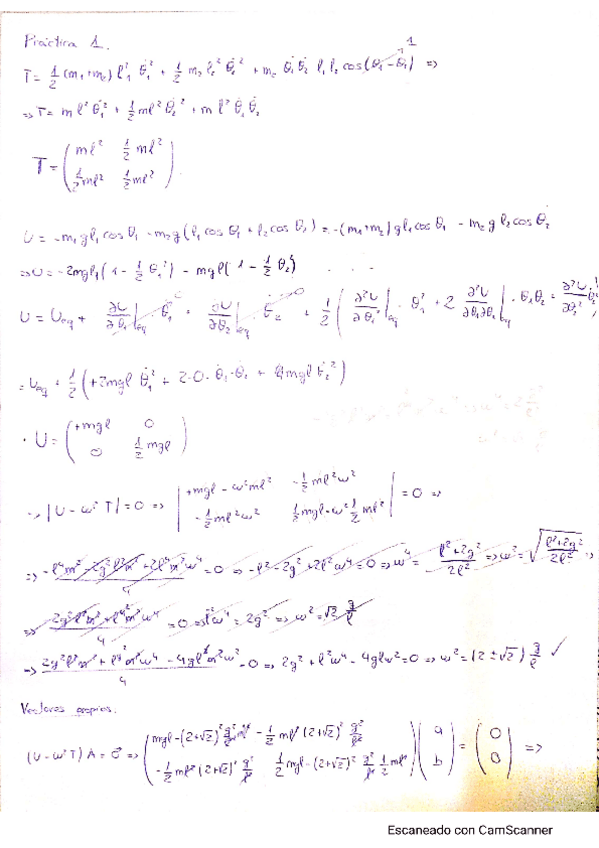 Práctica 1.
T = 1/2 (m₁+m₂) l₁² θ̇₁² + 1/2 m₂ l₂² θ̇₂² + m₂ θ̇₁ θ̇₂ l₁ l₂ cos(θ₁ - θ₂) 1 =>
=> T = m l² θ̇₁² + 1/2 m l² θ̇₂² + m l² θ̇₁ θ̇₂
T = ( ml² 1/2 ml²
1/2 ml² 1/2 ml² ).
U = -m₁gl₁cosθ₁ - m₂g(l₁cosθ₁ + l₂cosθ₂) = -(m₁+m₂)gl₁cosθ₁ - m₂gl₂cosθ₂
=> U = -2mgl₁(1 - 1/2 θ₁²) - mgl(1 - 1/2 θ₂²) . . .
U = U_eq + ∂U/∂θ₁|_eq θ₁ + ∂U/∂θ₂|_eq θ₂ + 1/2 ( ∂²U/∂θ₁²|_eq · θ₁² + 2 ∂²U/∂θ₁∂θ₂|_eq · θ₁θ₂ + ∂²U/∂θ₂²
= U_eq + 1/2 (+2mgl θ₁² + 2·0·θ₁·θ₂ + mgl θ₂²)
· U = ( +mgl 0
0 1/2 mgl )
-> |U - ω²T| = 0 => | +mgl - ω²ml² -1/2 ml²ω²
-1/2 ml²ω² 1/2 mgl - ω² 1/2 ml² | = 0 =>
=> -l⁴m² - 2g²l²m² + 2l⁴m²ω⁴ / 4 = 0 => -l² - 2g² + 2l²ω⁴ = 0 => ω⁴ = l²+2g² / 2l² => ω² = √(l²+2g² / 2l²) =>
=> 2g²l²m² + l⁴m²ω⁴ / 4 = 0 => l²ω⁴ = 2g² => ω² = √2 g/l
=> 2g²l²m² + l⁴m²ω⁴ - 4gl³m²ω² / 4 = 0 => 2g² + l²ω⁴ - 4glω² = 0 => ω² = (2 ± √2) g/l ✓
Vectores propios:
(U - ω²T) A = 0 => ( mgl - (2+√2)² g²/l² ml² - 1/2 ml² (2+√2)² g²/l²
-1/2 ml² (2+√2)² g²/l² 1/2 mgl - (2+√2)² g²/l² 1/2 ml² ) ( a
b ) = ( 0
0 ) =>
Escaneado con CamScanner